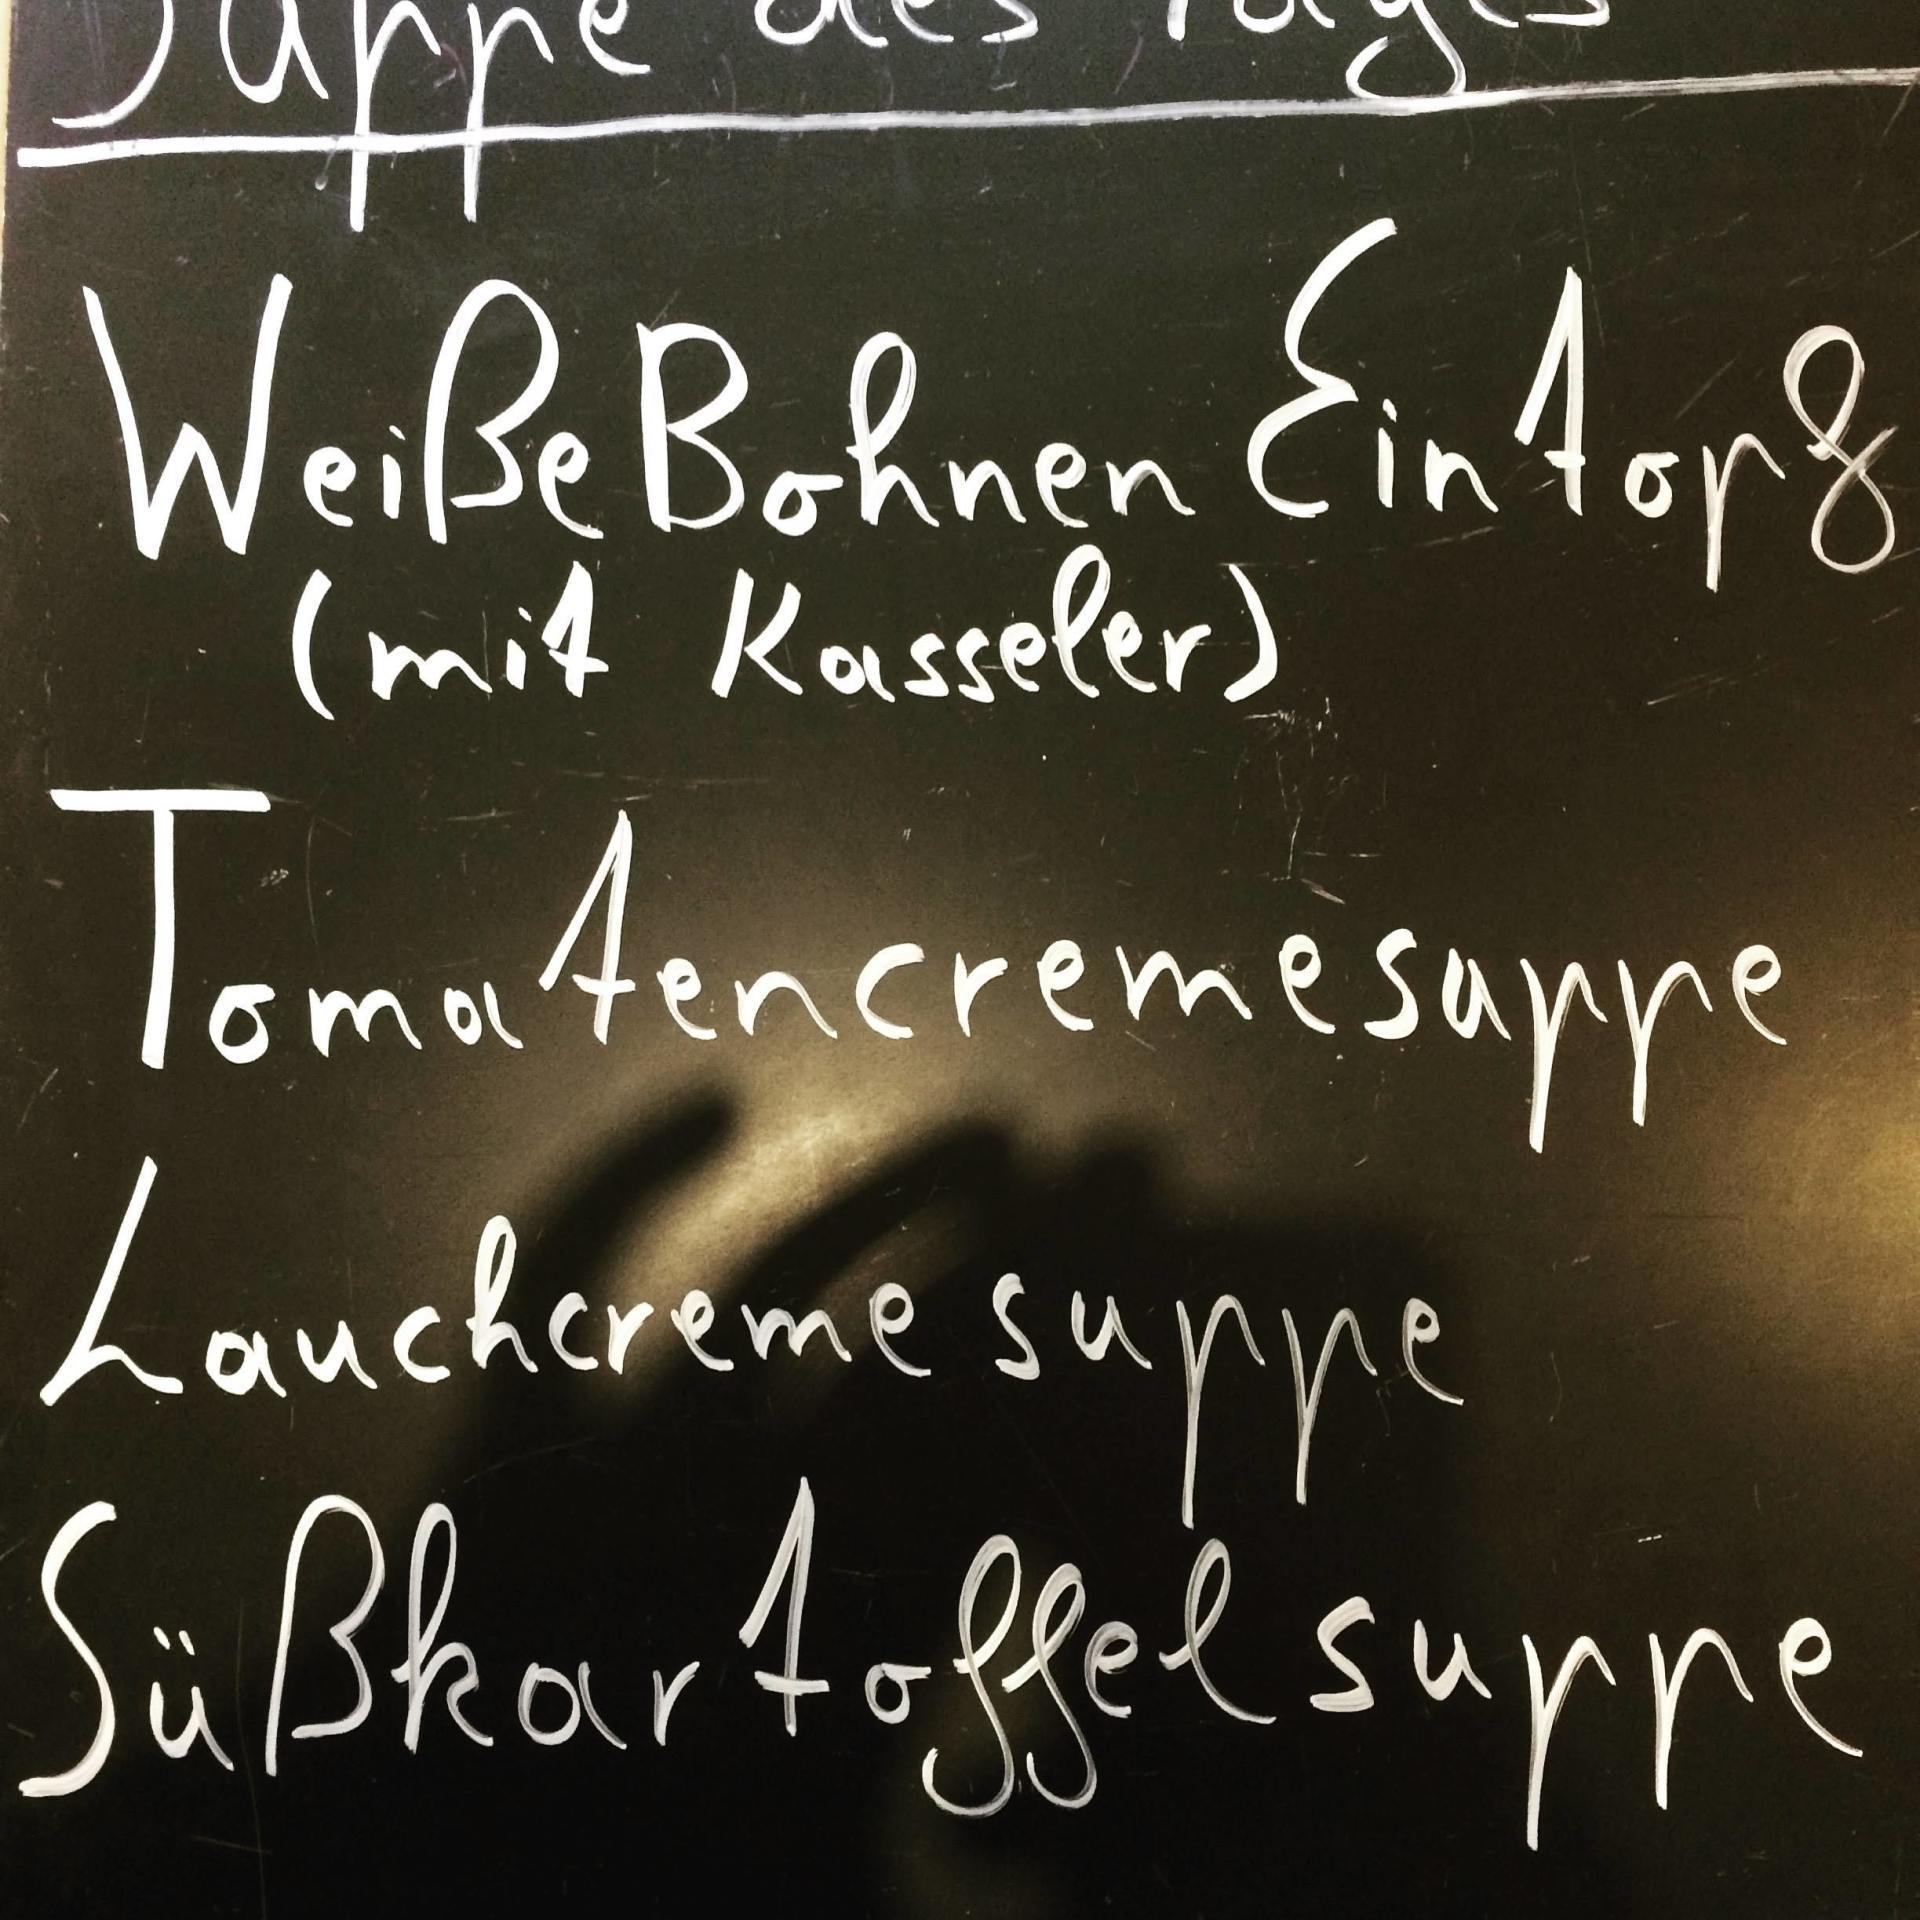 Suppe des Tages
Weiße Bohnen Eintopf
(mit Kasseler)
Tomatencremesuppe
Lauchcremesuppe
Süßkartoffelsuppe